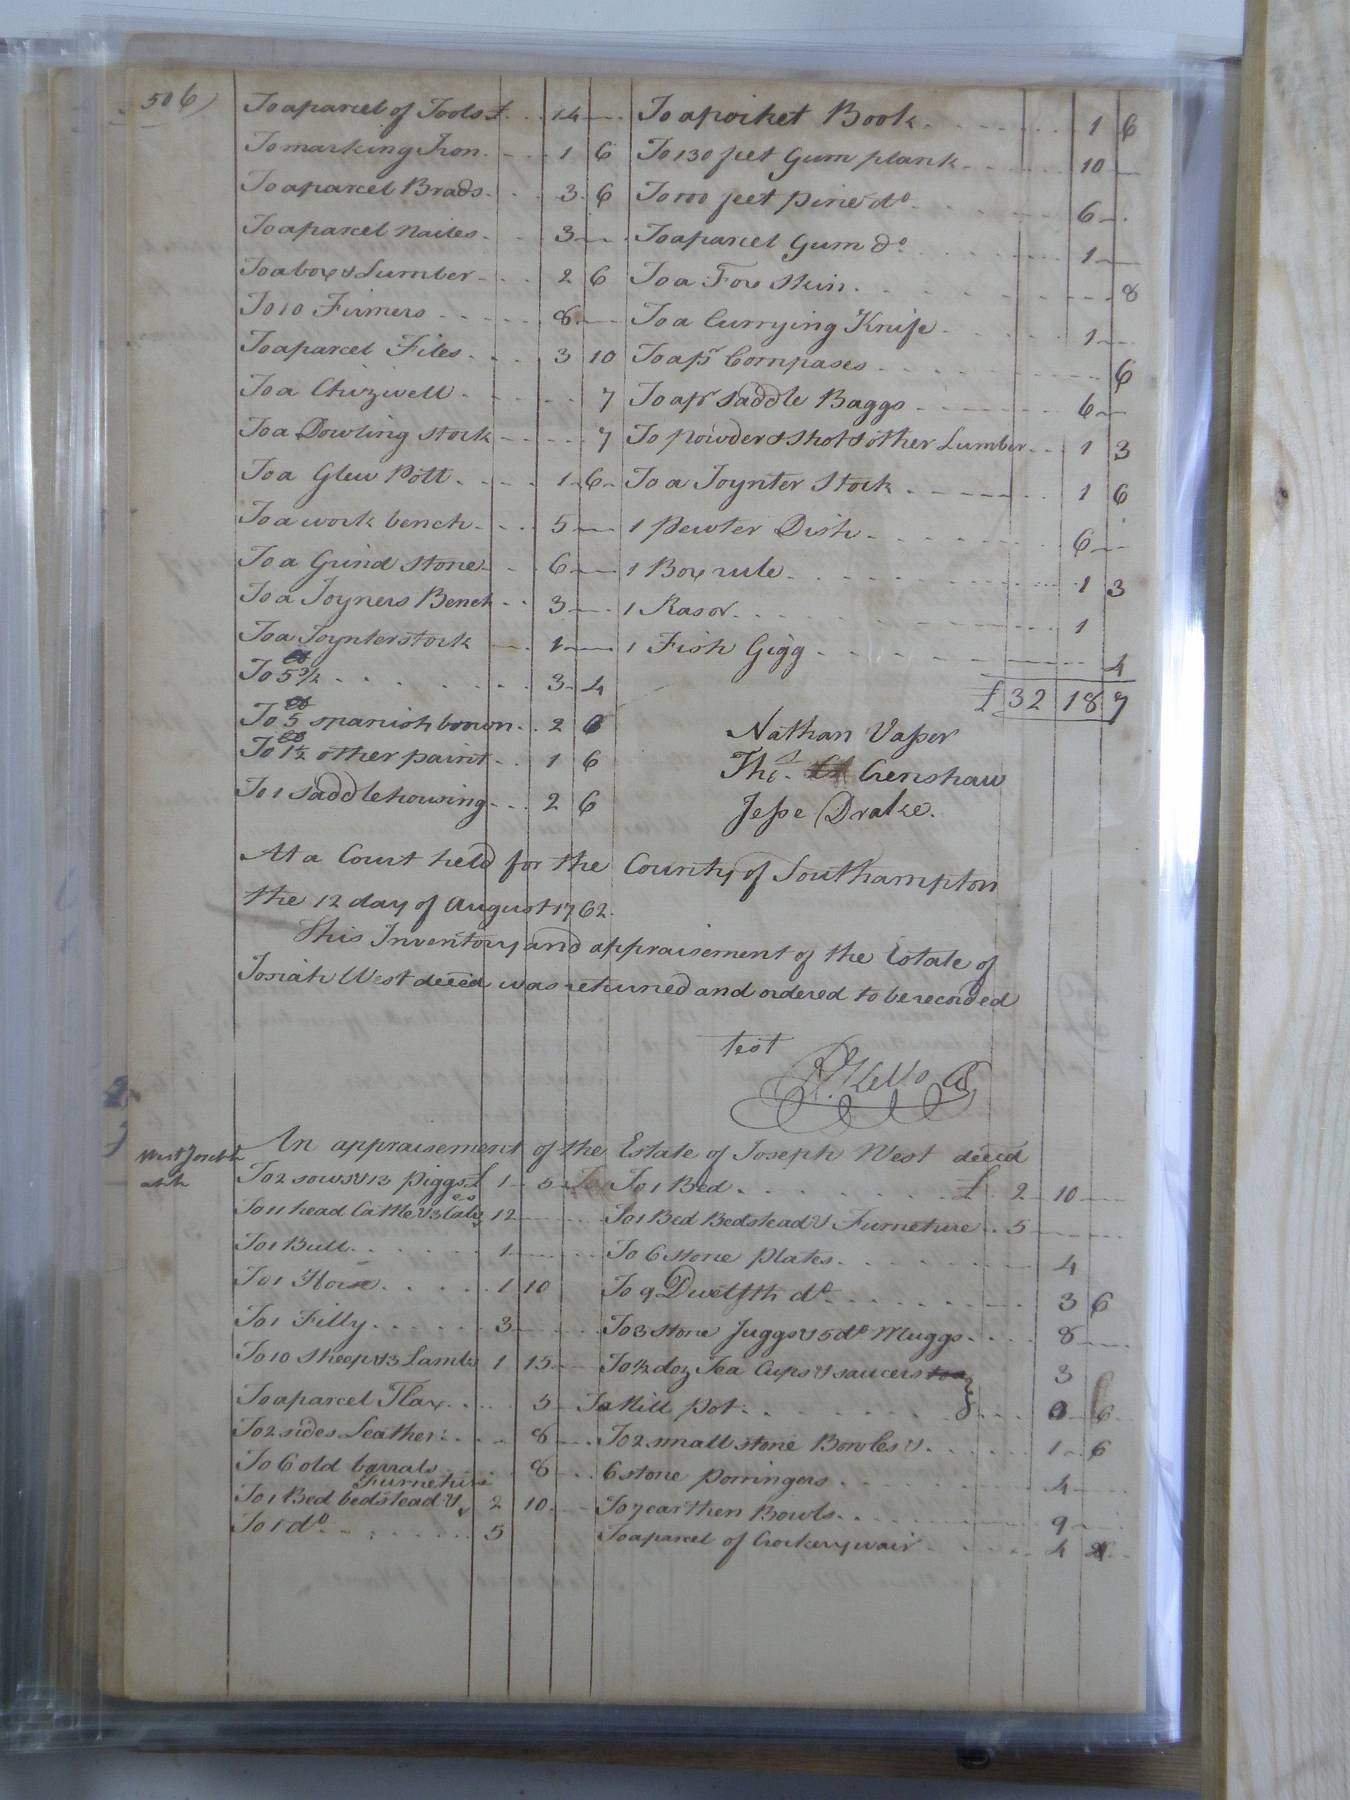 506)
To a parcel of Tools £ . . 14 —
To marking Iron . - - . 1 6
To a parcel Brads . . . 3 . 6
To a parcel nailes . . 3 —
To a box & Lumber - - . 2 6
To 10 Firmers . . . . . 8 . —
To a parcel Files . . . 3 10
To a Chizwell . . . . . . 7
To a Dowling stock - - - . . 7
To a Glew Pott . . . . 1 . 6 -
To a work bench . . . 5 —
To a Grind stone . . 6 —
To a Joyners Bench . . 3 —
To a Joynter stock — . 1 —
To 5 lb 3/4 . . . . . . 3 - 4
To 5 lb spanish brown . . 2 6
To 1½ lb other paint . . 1 6
To 1 saddle housing - - - 2 6
To a pocket Book . . . . . . 1 6
To 130 feet Gum plank . . . . 10 —
To 100 feet pine do . . . . . 6 —
To a parcel Gum do . . . . . 1 —
To a Fox Skin . . . . . . 8
To a Currying Knife . . . . 1 —
To a pr Compases . . . . . . 6
To a pr saddle Baggs . . . . . 6 —
To powder & shot & other Lumber . . . 1 3
To a Joynter Stock . . . . . 1 6
1 Pewter Dish . . . . . . 6 —
1 Box rule . . . . . . 1 3
1 Rasor . . . . . . . 1
1 Fish Gigg . . . . . . 4
£ 32 18 7
Nathan Vasser
Thos. Crenshaw
Jesse Drake.
At a Court held for the County of Southampton
the 12 day of August 1762.
This Inventory and appraisement of the Estate of
Josiah West deced was returned and ordered to be recorded
test
R. Kello Cl
West Joseph
An appraisement of the Estate of Joseph West deced
To 2 sows & 13 piggs £ 1 - 5 -
To 11 head Cattle & 3 Calves 12 —
To 1 Bull . . . . . 1 —
To 1 Horse . . . . . 1 10
To 1 Filly . . . . . . 3 —
To 10 sheep & 3 Lambs 1 15 —
To a parcel Flax . . . . 5 —
To 2 sides Leather . . . . 8 —
To 6 old barrals . . . . 8 —
To 1 Bed bedstead & Furneture 2 10 —
To 1 do . . . . . . . 5
To 1 Bed . . . . . . £ 2 - 10 —
To 1 Bed Bedstead & Furneture . . 5 —
To 6 stone plates . . . . . . 4
To 9 Dwelfth do . . . . . . 3 6
To 3 stone Juggs & 5 do Muggs . . . . 8 —
To ½ doz Tea Cups & saucers 3
To Mill pot . . . . . . . 6
To 2 small stone Bowles & . . . . . 1 - 6
6 stone porringers . . . . . 4 —
To 7 earthen Bowls . . . . . 9 —
To a parcel of Crockerywair . . . . . 4